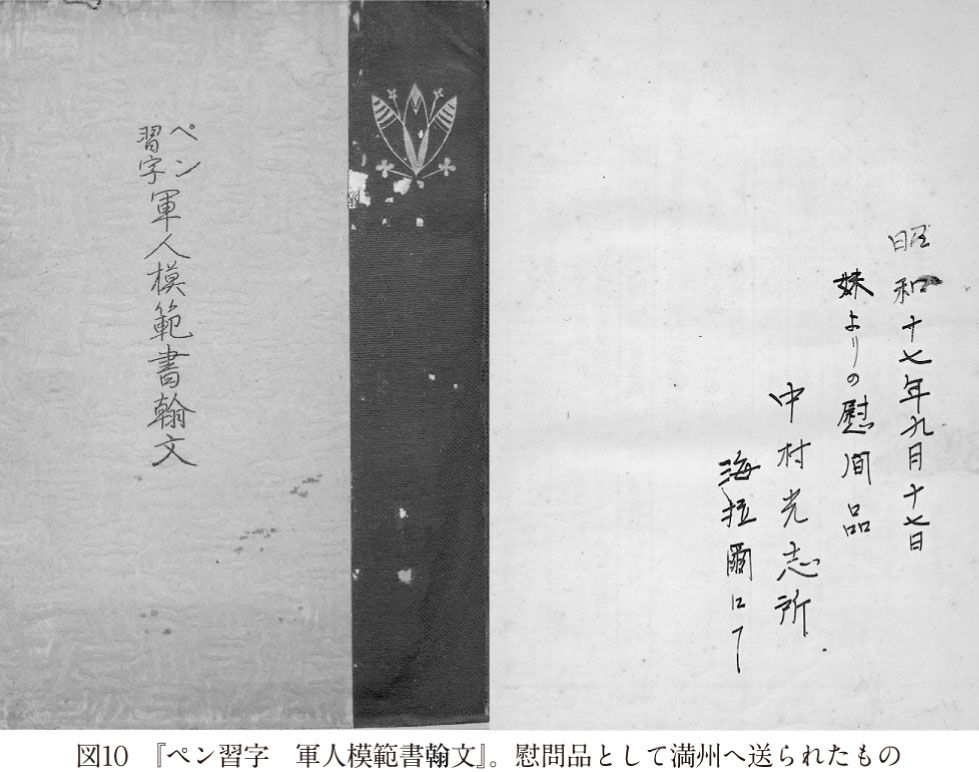 ペン習字軍人模範書翰文
昭和十七年九月十七日
妹よりの慰問品
中村光志所
海拉爾にて
図10 『ペン習字　軍人模範書翰文』。慰問品として満州へ送られたもの